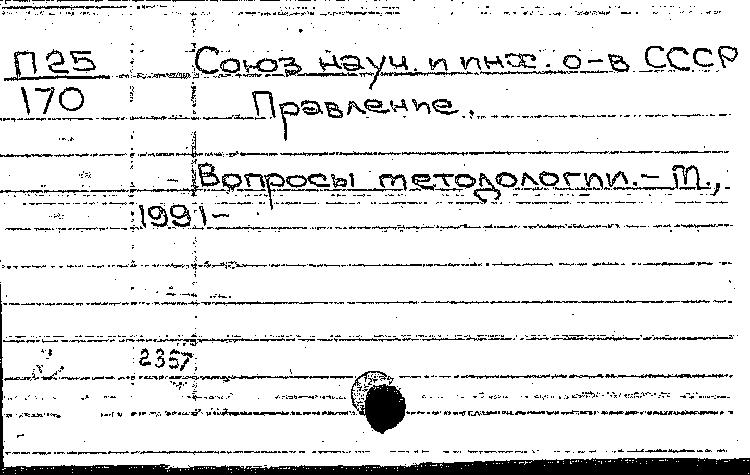 П25 Союз науч. и инж. о-в СССР
170 Правление.
Вопросы методологии. – М.,
1991 –
2357